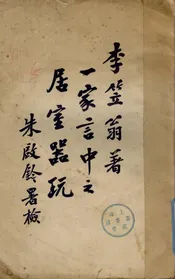 李笠翁著
一家言中之
居室器玩
朱啟鈐署檢